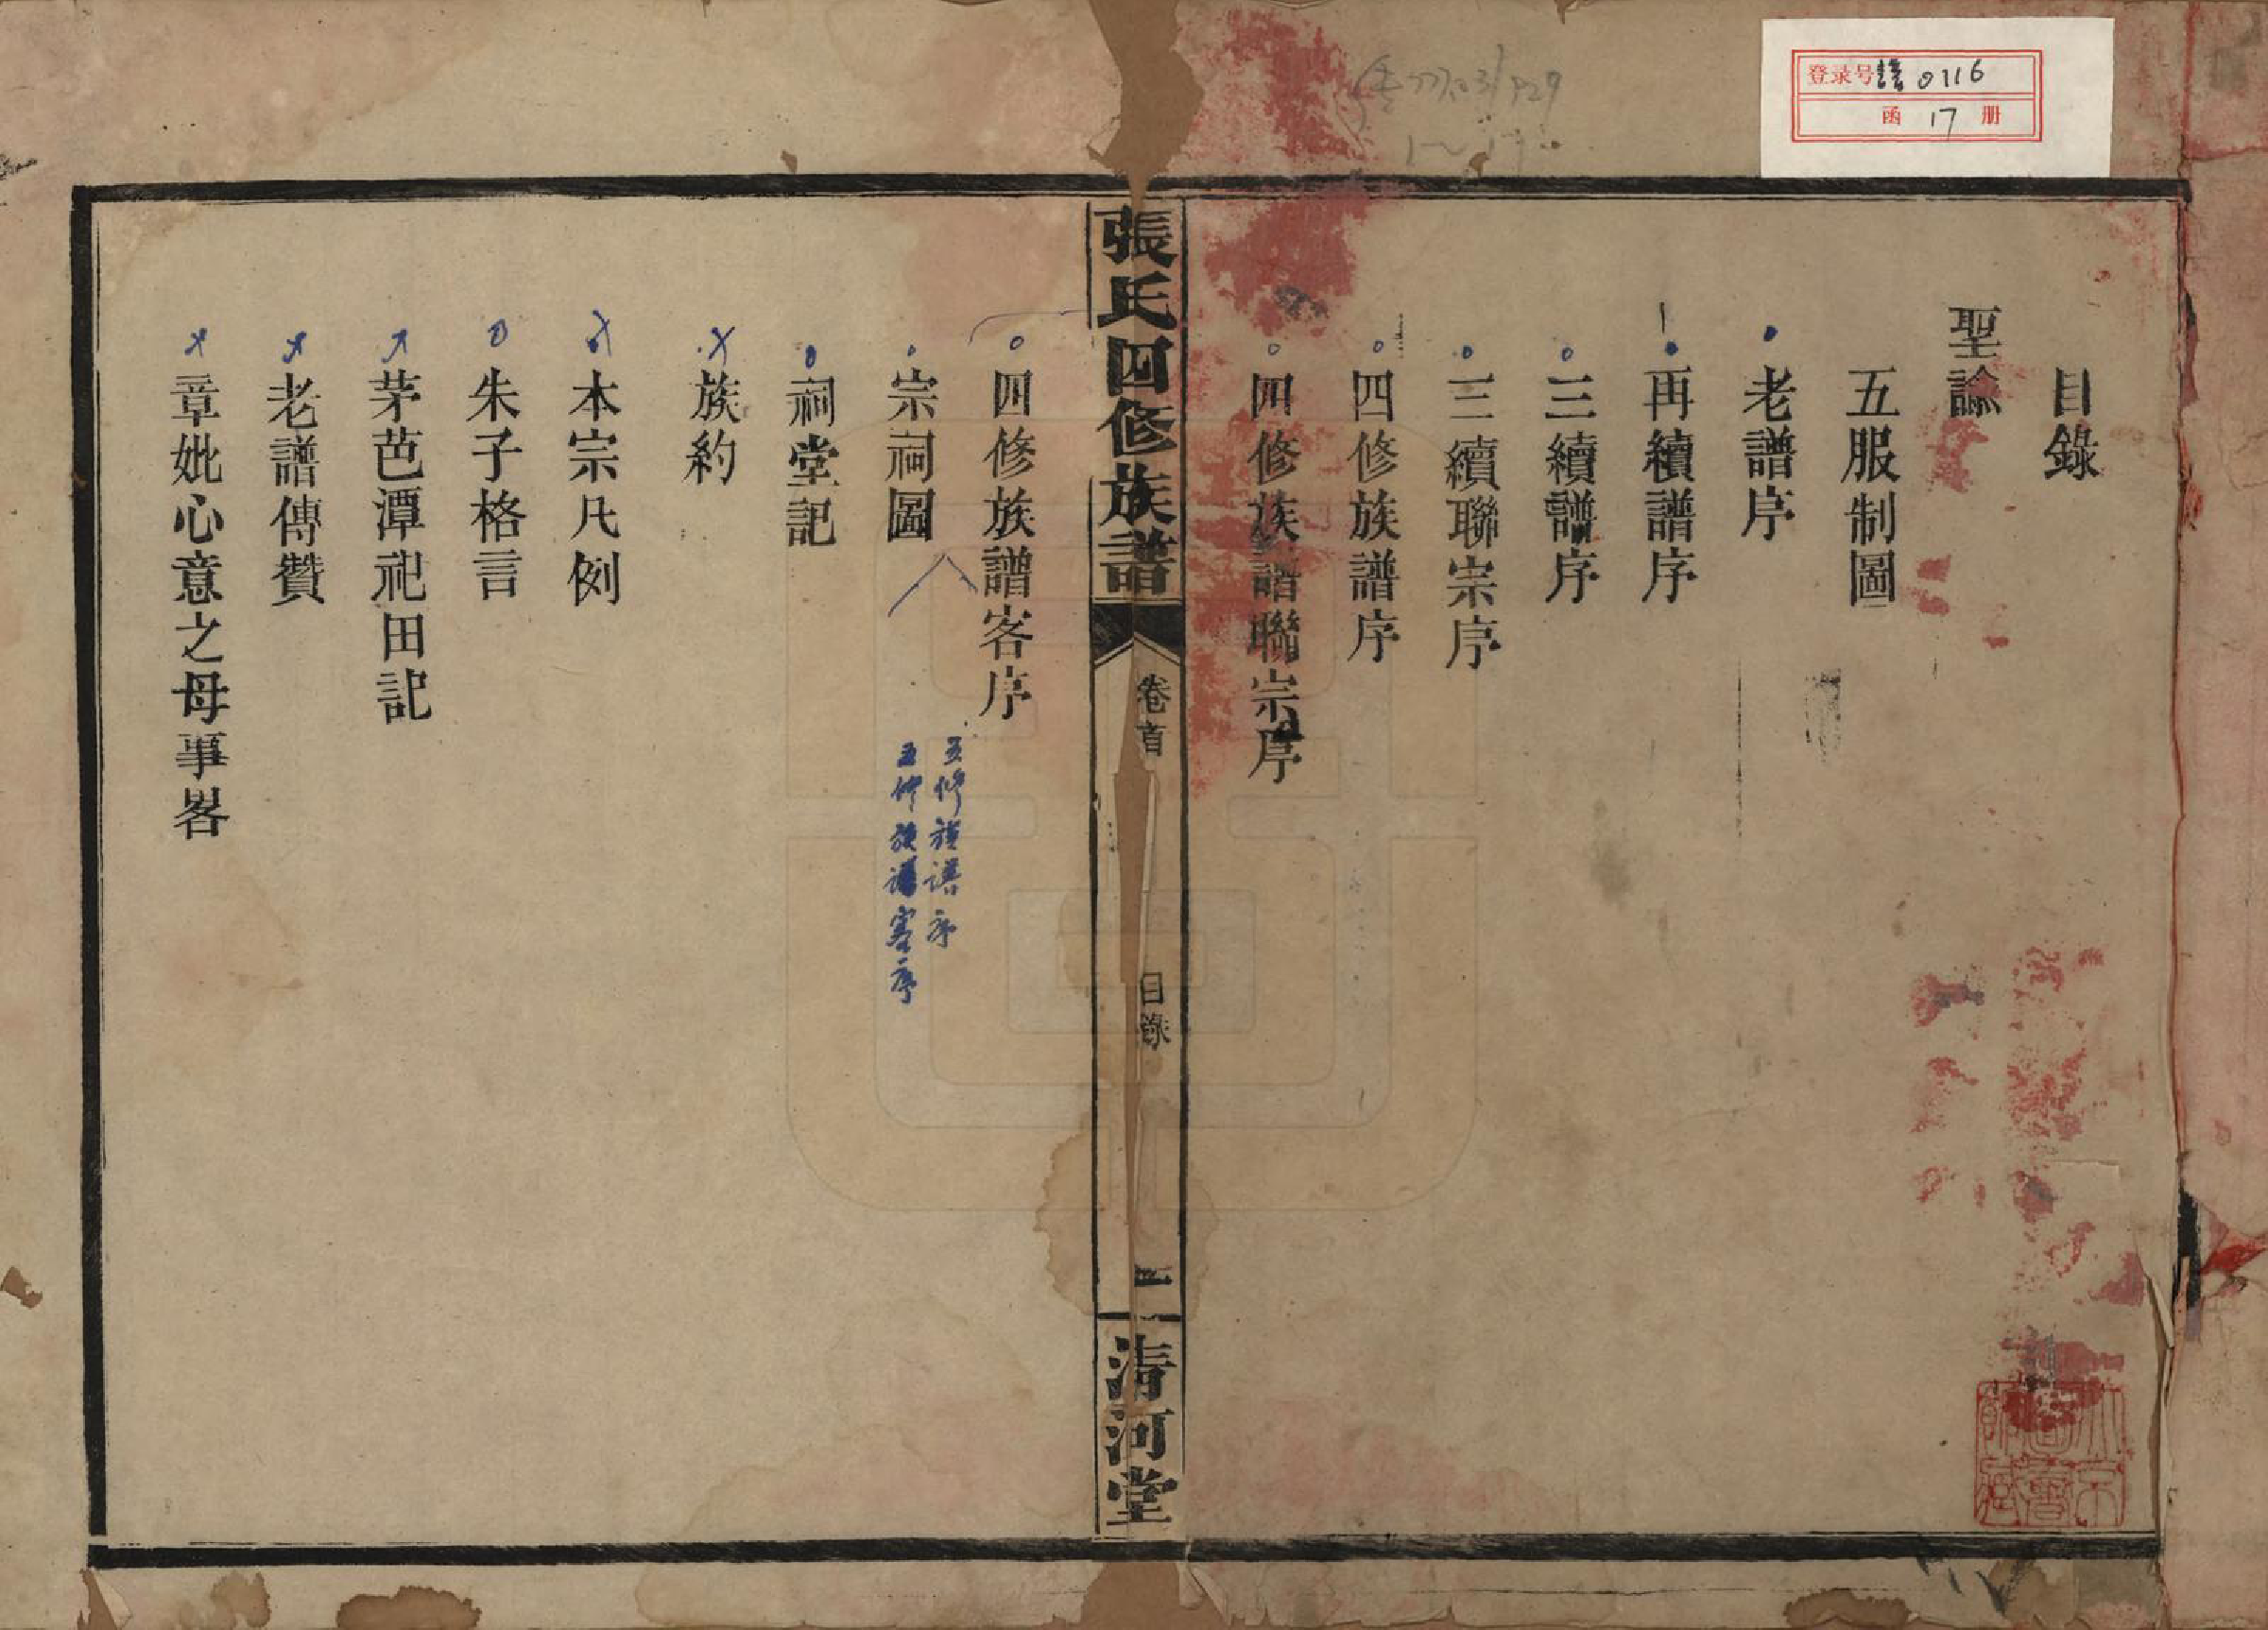 登录号 譜 0116
函 17 册
目錄
聖諭
五服制圖
老譜序
再續譜序
三續譜序
三續聯宗序
四修族譜序
四修族譜聯宗序
張氏四修族譜
卷首
目錄
一
清河堂
四修族譜客序
五修族谱序
五修族谱客序
宗祠圖
祠堂記
族約
本宗凡例
朱子格言
茅芭潭祀田記
老譜傳贊
章妣心意之母事畧